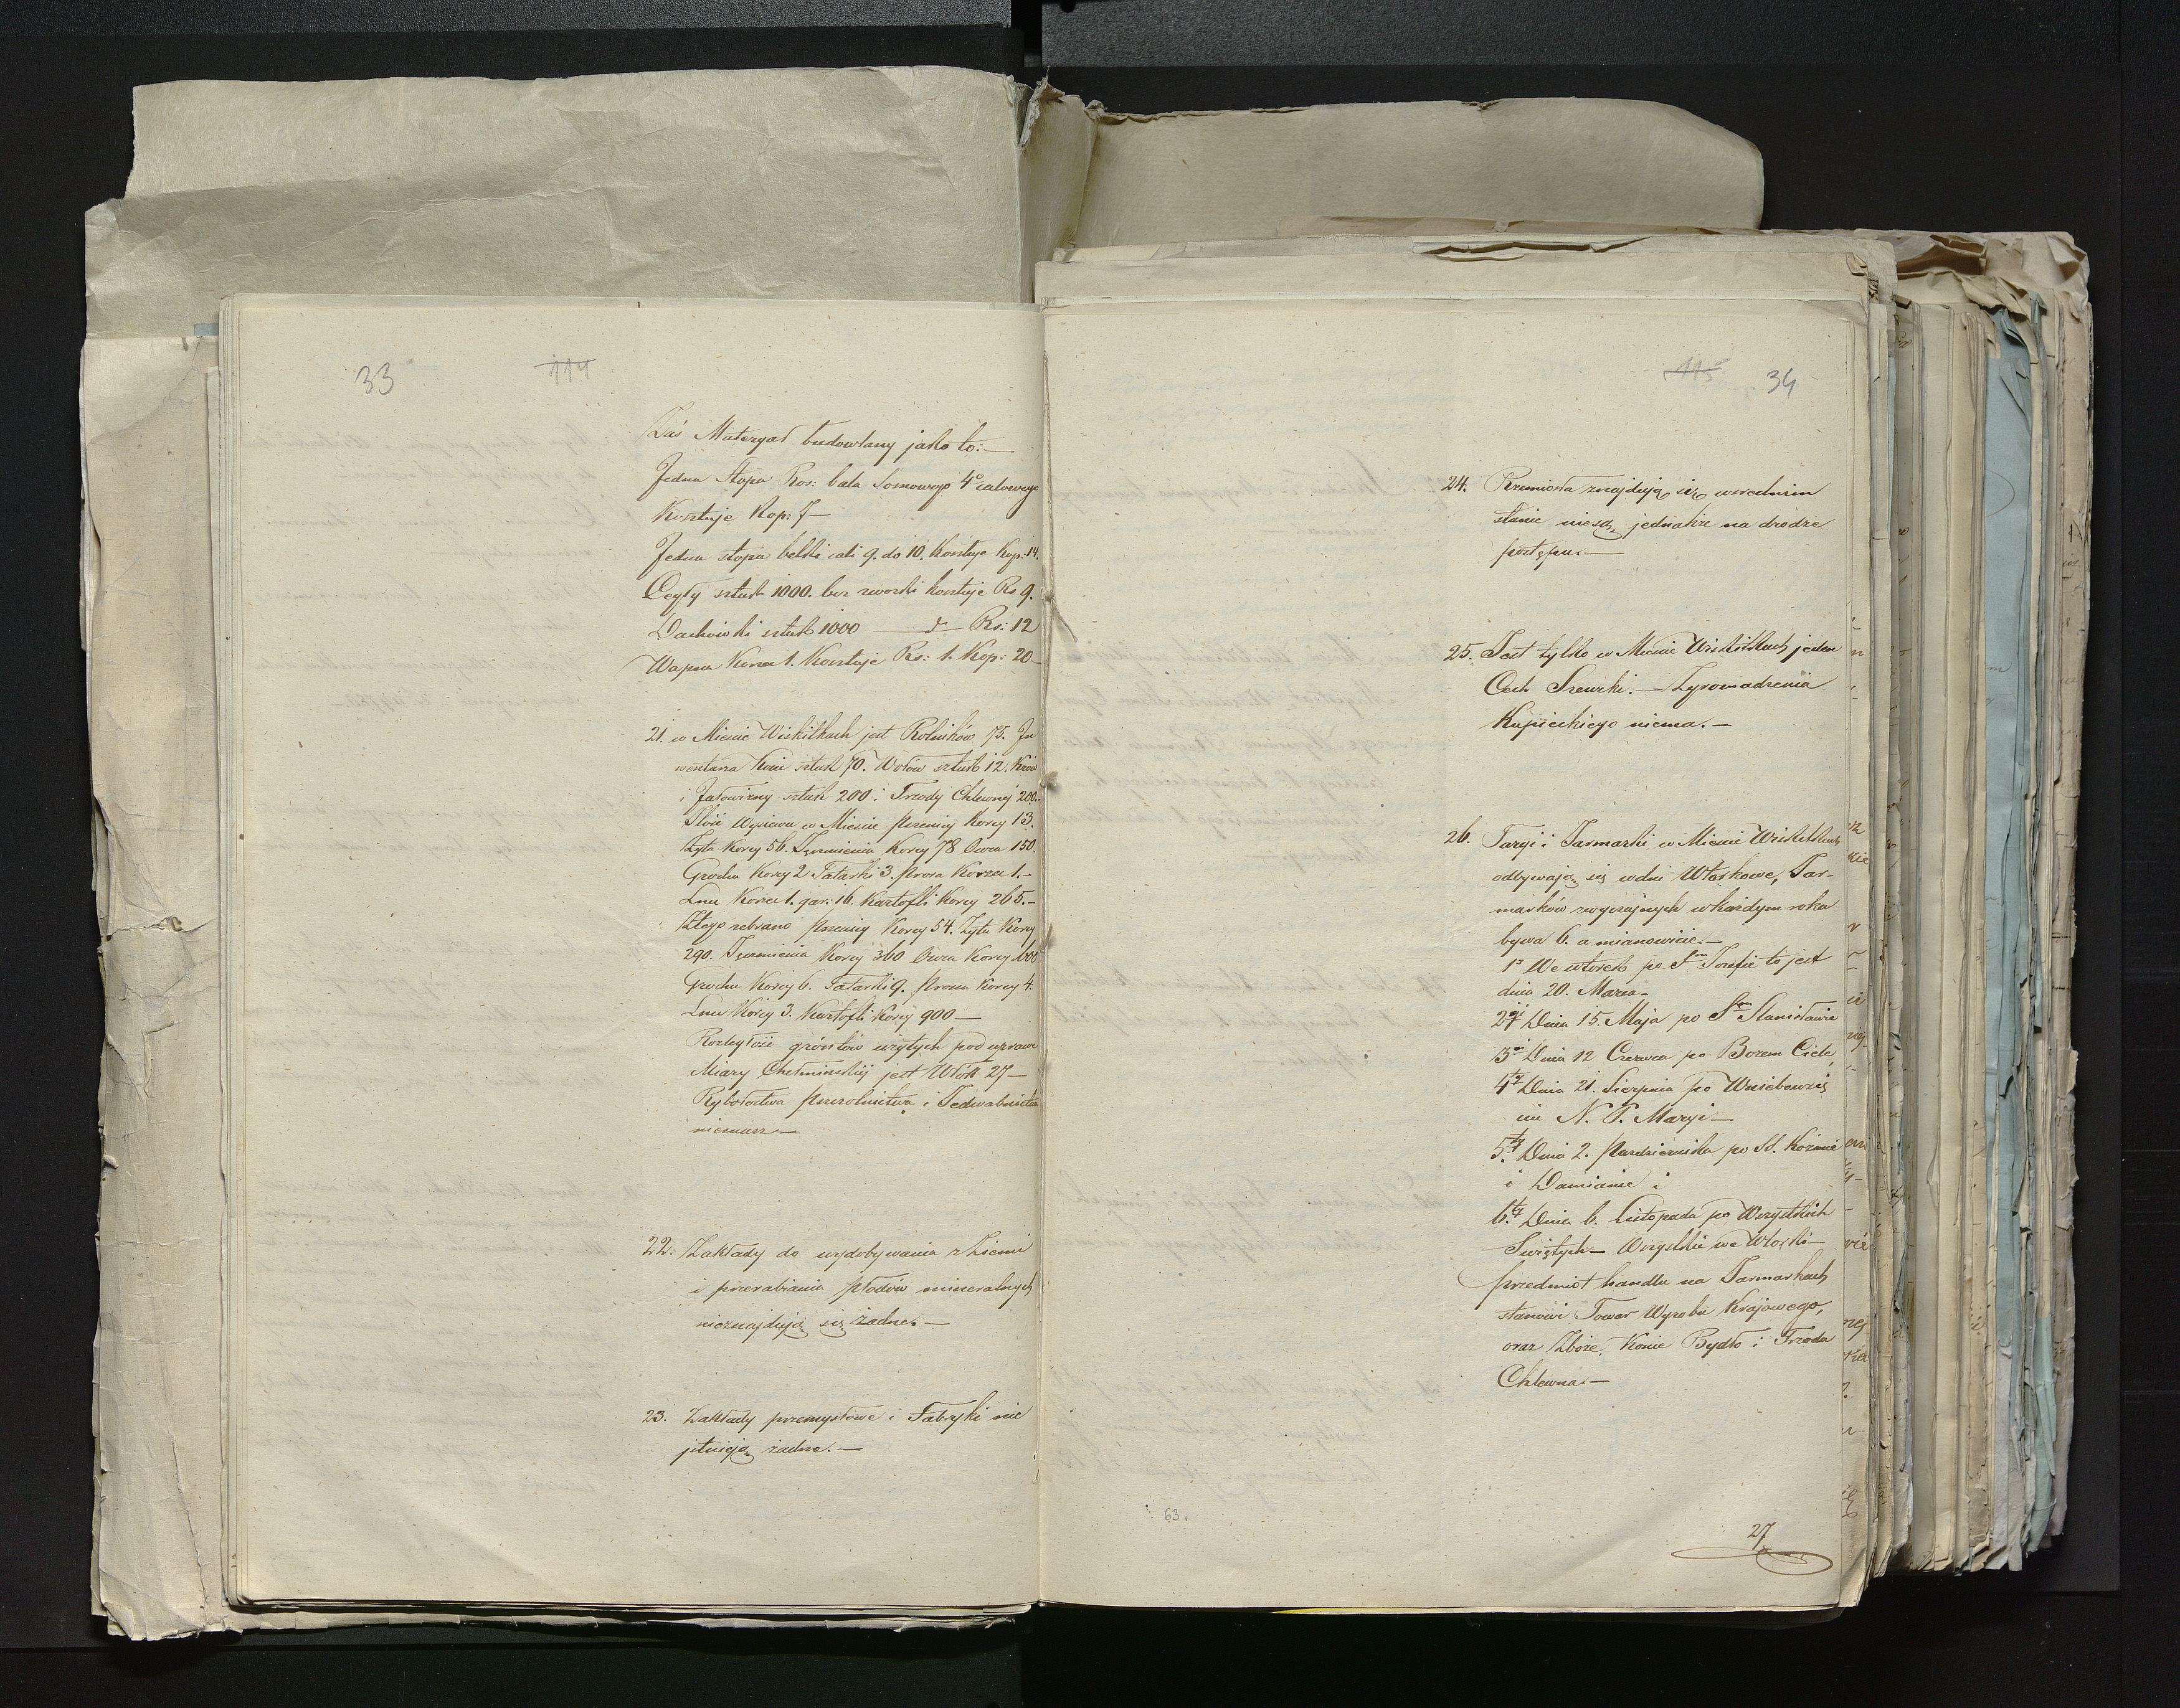 33
114
Zaś Materyał budowlany jako to:—
Jedna Stopa Ros: bala Sosnowego 4° calowego
Kosztuje Kop: 7—
Jedna stopa belki cali 9. do 10. Kosztuje Kop: 14.
Cegły sztuk 1000. bez zwozki kosztuje Rs 9.
Dachówki sztuk 1000 — d° — Rs: 12
Wapna Korzec 1. Kosztuje Rs: 1. Kop: 20—
21. w Mieście Wiskitkach jest Rolników 75. In
wentarza Koni sztuk 70. Wołów sztuk 12. Krów
i Jałowizny sztuk 200 i Trzody Chlewnej 200.
Ilość Wysiewu w Mieście Pszenicy Korcy 13.
Żyta Korcy 56. Jęczmienia Korcy 78 Owsa 150.
Grochu Korcy 2 Tatarki 3. Prosa Korzec 1.—
Lnu Korzec 1. gar: 16. Kartofli Korcy 265.—
Z tego zebrano Pszenicy Korcy 54. Żyta Korcy
290. Jęczmienia Korcy 360 Owsa Korcy 600
Grochu Korcy 6. Tatarki 9. Prosa Korcy 4.
Lnu Korcy 3. Kartofli Korcy 900—
Rozległość gróntów użytych pod uprawę
Miary Chełmińskiej jest Włók 27—
Rybołostwa Pszczolnictwa i Jedwabnictwa
niemasz—
22. Zakłady do wydobywania z Ziemi
i przerabiania płodów mineralnych
nieznajdują się żadne.—
23. Zakłady przemysłowe i Fabryki nie
istnieją żadne.—
115
34
24. Rzemiosła znajdują się w srednim
stanie niesą jednakże na drodze
postępu.—
25. Jest tylko w Mieście Wiskitkach jeden
Cech Szewcki.— Zgromadzenia
Kupieckiego niema.—
26. Targi i Jarmarki w Mieście Wiskitkach
odbywają się w dni Wtorkowe, Jar-
marków zwyczajnych w każdym roku
bywa 6. a mianowicie.—
1° We wtorek po Sm Jozefie to jest
dnia 20. Marca—
2gi Dnia 15. Maja po Sm Stanisławie
3ci Dnia 12 Czerwca po Bożem Ciele
4ty Dnia 21. Sierpnia po Wniebowzię
ciu N. P. Maryi—
5ty Dnia 2. Pazdziernika po SS. Kozmie
i Damianie i
6ty Dnia 6. Listopada po Wszystkich
Świętych— Wszystkie we Wtorki—
przedmiot handlu na Jarmarkach
stanowi Towar Wyrobu Krajowego,
oraz Zboże, Konie Bydło i Trzoda
Chlewna.—
63.
27